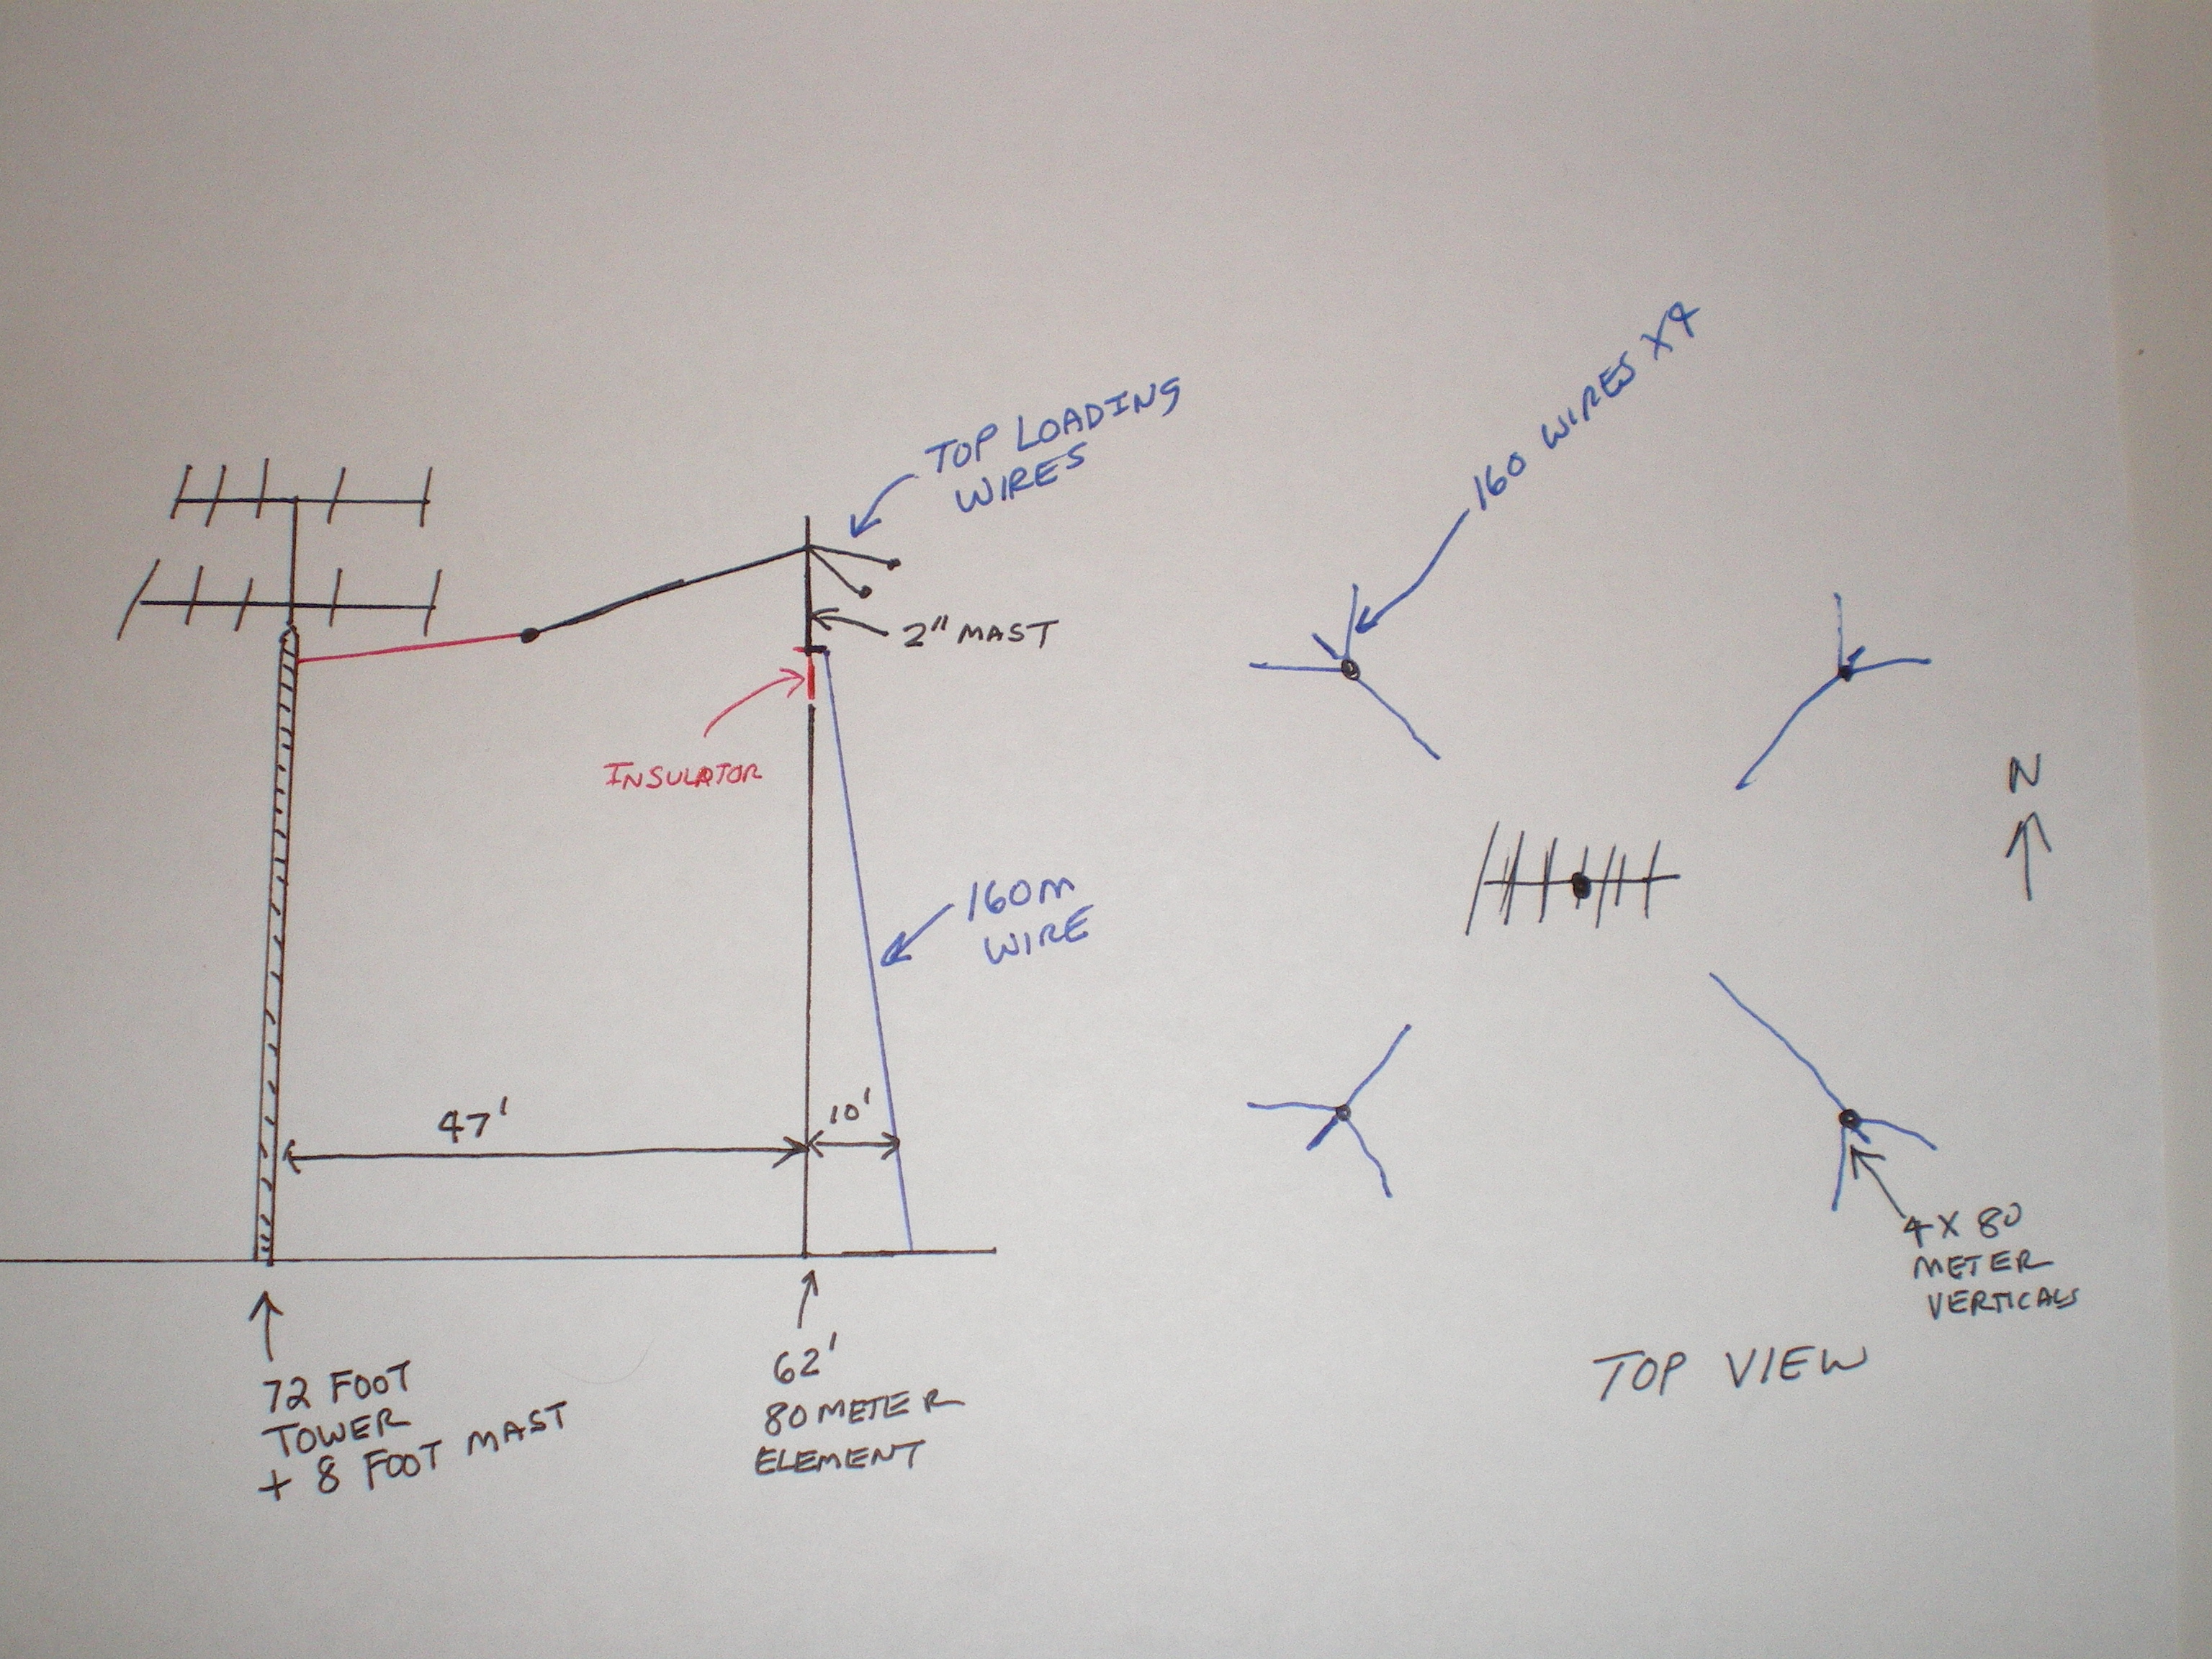 TOP LOADING
WIRES
2" MAST
INSULATOR
160M
WIRE
47'
10'
72 FOOT
TOWER
+ 8 FOOT MAST
62'
80 METER
ELEMENT
160 WIRES X4
N
4 X 80
METER
VERTICALS
TOP VIEW